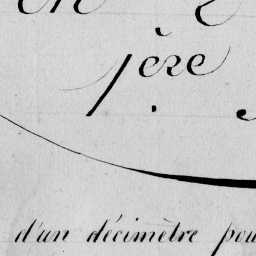 1ère
d'un décimètre pou